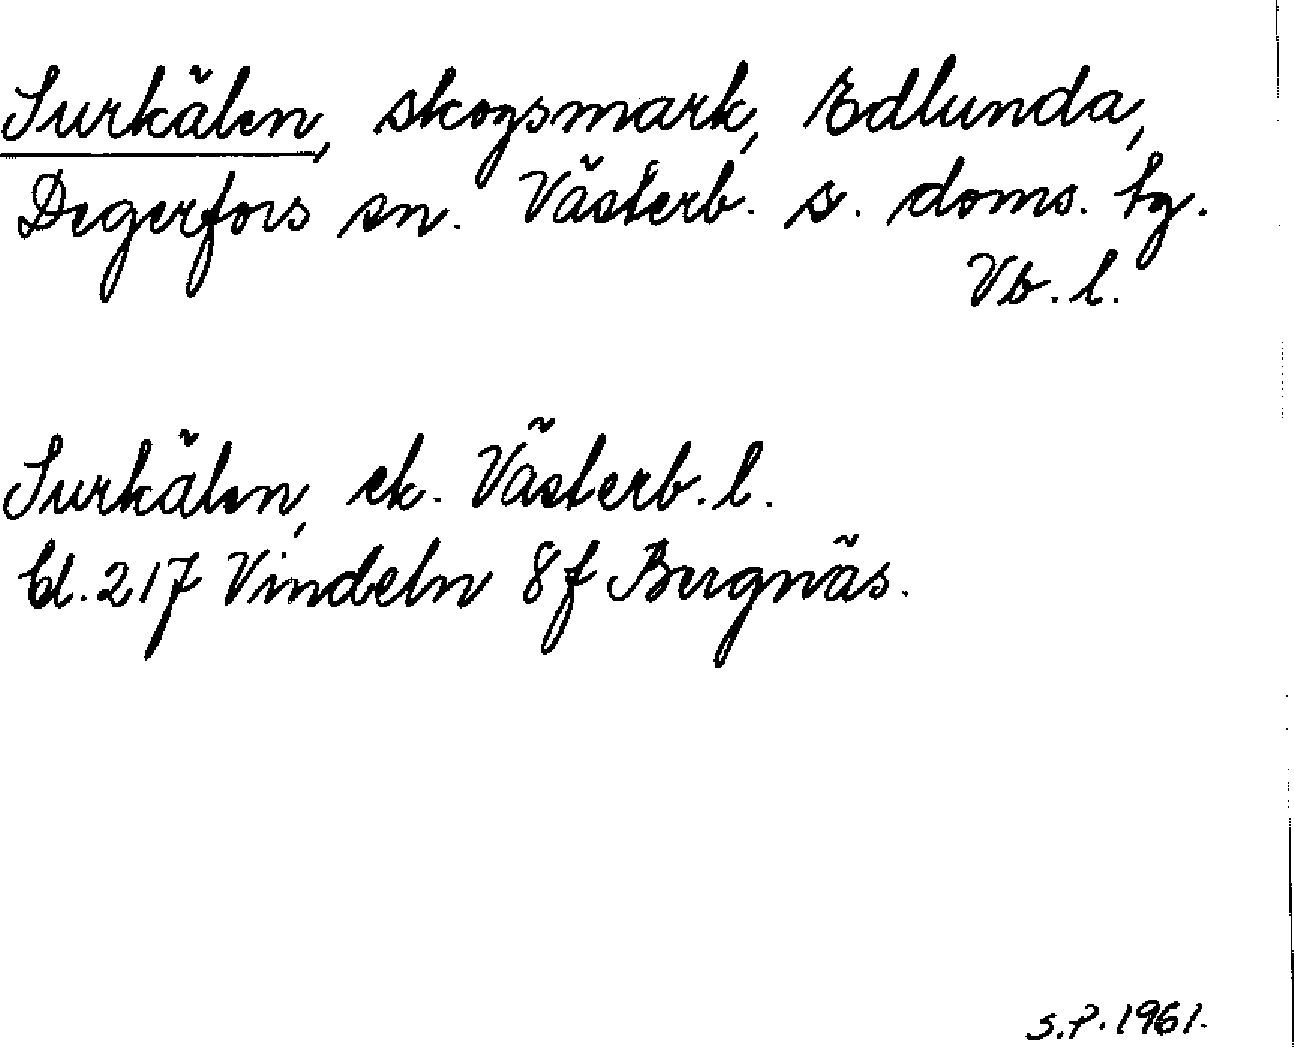 Surkälen, skogsmark, Edlunda,
Degerfors sn. Västerb. s. doms. tg.
Vb. l.
Surkälen, ek. Västerb. l.
bl. 217 Vindeln 8f Bergnäs.
S.P. 1961.